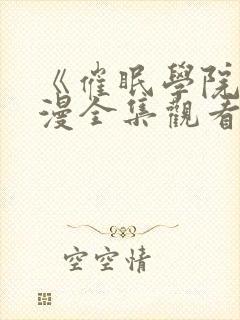 《催眠學院
漫全集觀看
空空情